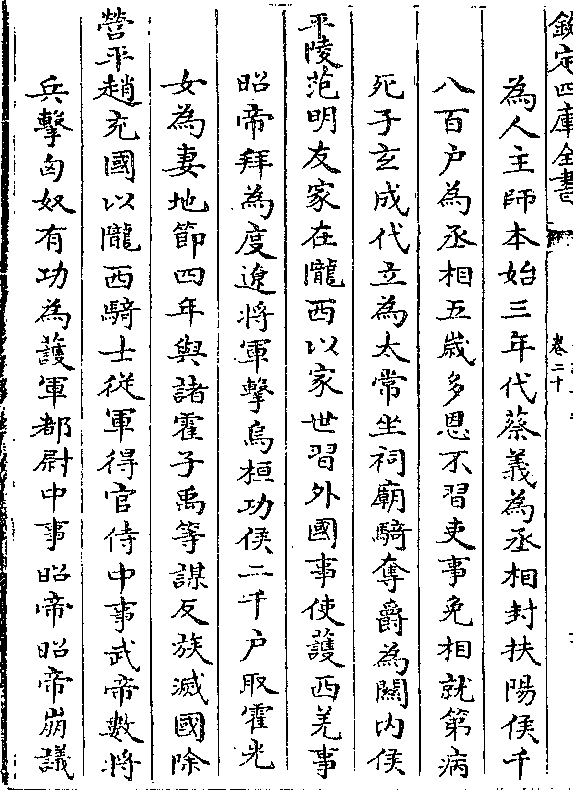 欽定四庫全書
卷二十
為人主師本始三年代蔡義為丞相封扶陽侯千
八百户為丞相五歲多恩不習吏事免相就第病
死子玄成代立為太常坐祠廟騎奪爵為關内侯
平陵范明友家在隴西以家世習外國事使護西羌事
昭帝拜為度遼將軍擊烏桓功侯二千户取霍光
女為妻地節四年與諸霍子禹等謀反族滅國除
營平趙充國以隴西騎士從軍得官侍中事武帝數將
兵擊匈奴有功為護軍都尉中事昭帝昭帝崩議